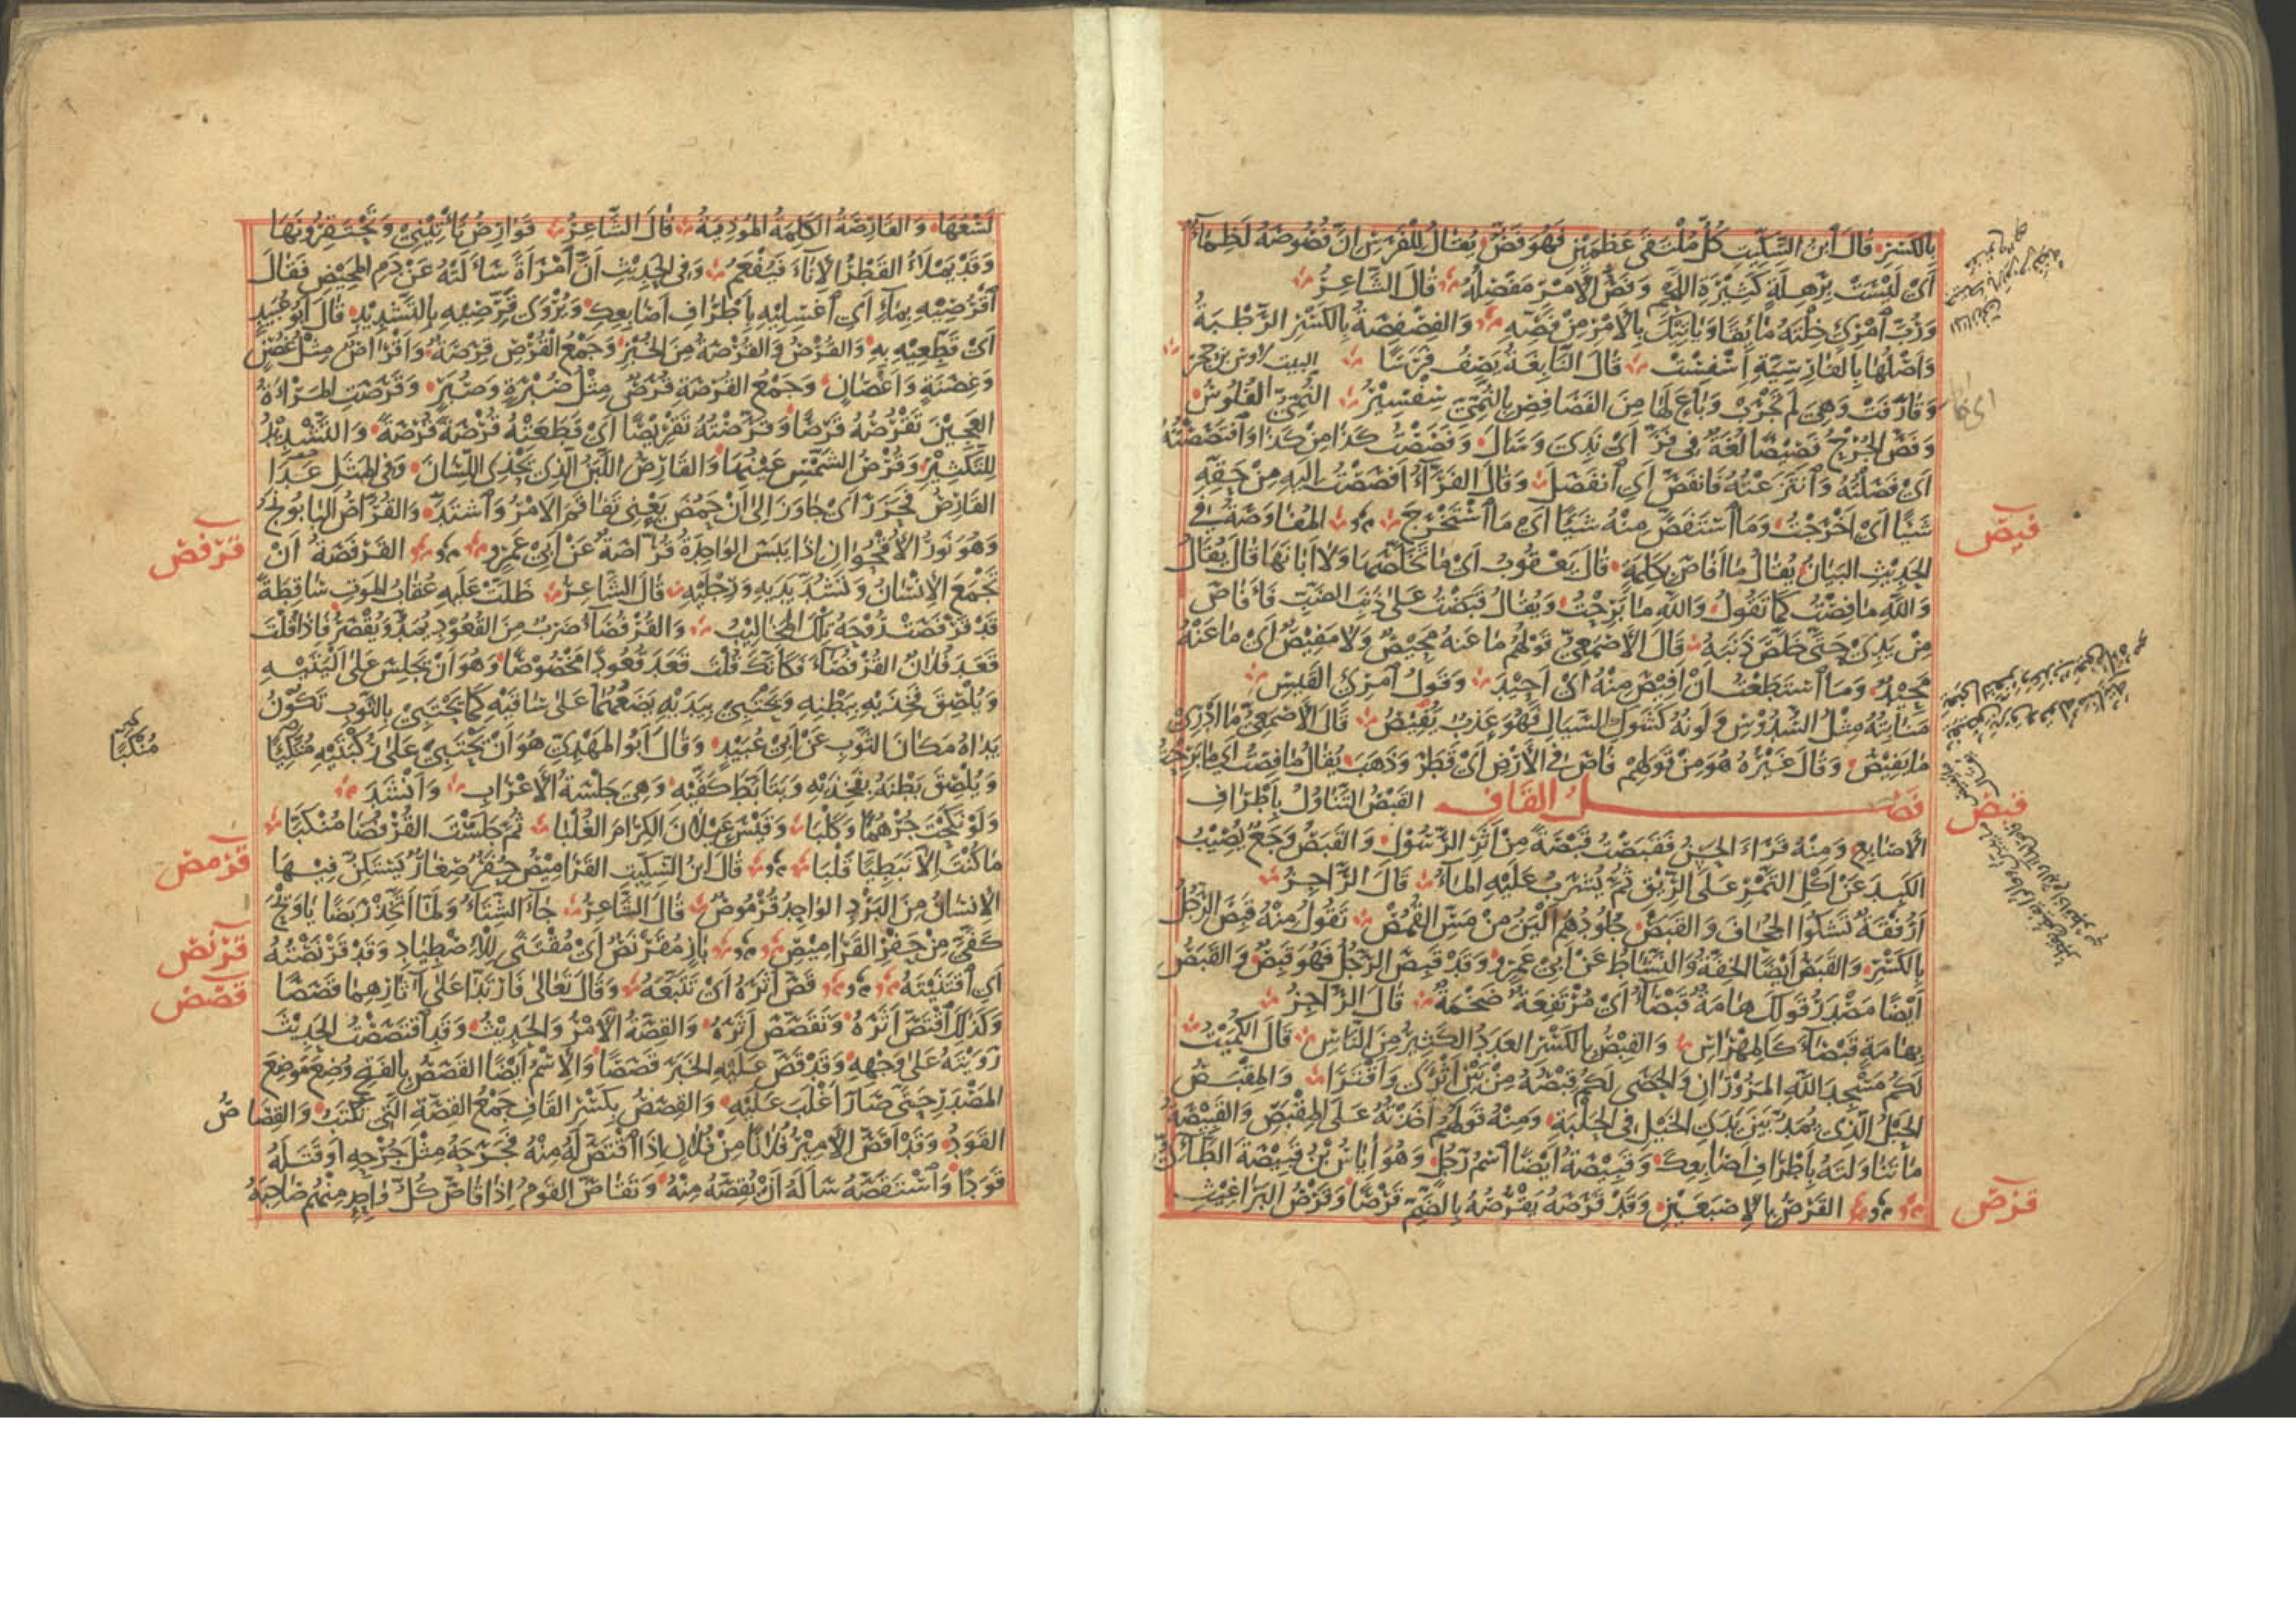 بِالكَسْرِ قَالَ ابْنُ السِّكِّيتِ كُلُّ مُلْتَقَى عَظْمَيْنِ فَهُوَ فَصٌّ يُقَالُ لِلْفَرَسِ اِنَّ فُصُوصَهُ لَظِمَاءٌ
اَىْ لَيْسَتْ بِرَهِلَةٍ كَثِيرَةِ اللَّحْمِ وَفَصُّ الْاَمْرِ مَفْصِلُهُ قَالَ الشَّاعِرُ
وَرُبَّ امْرِئٍ خِلْتَهُ مَائِقًا وَيَأتِيكَ بِالْاَمْرِ مِنْ فَصِّهِ وَالفِصْفِصَةُ بِالكَسْرِ الرَّطْبَةُ
وَاَصْلُهَا بِالفَارِسِيَّةِ اَسْفِسْتْ قَالَ النَّابِغَةُ يَصِفُ فَرَسًا البيت لاوس بن حجر
وَقَارَفَتْ وَهْيَ لَمْ تَجْرَبْ وَبَاعَ لَهَا مِنَ الفَصَافِصِ بِالنُّمِّيِّ سِفْسِيرُ النُّمِّيّ الفُلُوسُ
وَفَصَّ الجُرْحُ فَصِيصًا لُغَةٌ فِى فَزَّ اَىْ نَدِىَ وَسَالَ وَفَصَصْتُ كَذَا مِنْ كَذَا وَافْتَصَصْتُهُ
اَىْ فَصَلْتُهُ وَانْتَزَعْتُهُ فَانْفَصَّ اَىِ انْفَصَلَ وَقَالَ الفَرَّاءُ اَفْصَصْتُ اِلَيْهِ مِنْ حَقِّهِ
شَيْئًا اَىْ اَخْرَجْتُ وَمَا اسْتَفَصَّ مِنْهُ شَيْئًا اَىْ مَا اسْتَخْرَجَ المُفَاوَصَةُ فِى
فيص
الحَدِيثِ البَيَانُ يُقَالُ مَا اَفَاصَ بِكَلِمَةٍ قَالَ يَعْقُوبُ اَىْ مَا تَخَلَّصَهَا وَلَا اَبَانَهَا قَالَ يُقَالُ
وَاللهِ مَا فِصْتُ كَمَا تَقُولُ وَاللهِ مَا بَرِحْتُ وَيُقَالُ قَبَضْتُ عَلَى ذَنَبِ الضَّبِّ فَاَفَاصَ
مِنْ يَدِى حَتَّى خَلَصَ ذَنَبُهُ قَالَ الْاَصْمَعِىُّ قَوْلُهُمْ مَا عَنْهُ مَحِيصٌ وَلَا مَفِيصٌ اَىْ مَا عَنْهُ
مَحِيدٌ وَمَا اسْتَطَعْتُ اَنْ اَفِيصَ مِنْهُ اَىْ اَحِيدَ وَقَوْلُ امْرِئِ القَيْسِ
مَنَابِتُهُ مِثْلُ السُّدُوسِ وَلَوْنُهُ كَشَوْكِ السَّيَالِ فَهْوَ عَذْبٌ يُفِيصُ قَالَ الْاَصْمَعِىُّ مَا اَدْرِى
مَا يُفِيصُ وَقَالَ غَيْرُهُ هُوَ مِنْ قَوْلِهِمْ فَاصَ فِى الْاَرْضِ اَىْ قَطَرَ وَذَهَبَ يُقَالُ مَا فِصْتُ اَىْ مَا بَرِحْتُ
فَصْلُ القَافِ القَبْصُ التَّنَاوُلُ بِاَطْرَافِ
قبص
الْاَصَابِعِ وَمِنْهُ قَرَاَ الحَسَنُ فَقَبَصْتُ قَبْصَةً مِنْ اَثَرِ الرَّسُولِ وَالقَبَصُ وَجَعٌ يُصِيبُ
الكَبِدَ عَنْ اَكْلِ التَّمْرِ عَلَى الرِّيقِ ثُمَّ يُشْرَبُ عَلَيْهِ المَاءُ قَالَ الرَّاجِزُ
اَرُفْقَةٌ تَشْكُو الجُحَافَ وَالقَبَصْ جُلُودُهُمْ اَلْيَنُ مِنْ مَسِّ القُمُصْ تَقُولُ مِنْهُ قَبِصَ الرَّجُلُ
بِالكَسْرِ وَالقَبَصُ اَيْضًا الخِفَّةُ وَالنَّشَاطُ عَنْ اَبِى عَمْرٍو وَقَدْ قَبِصَ الرَّجُلُ فَهُوَ قَبِصٌ وَالقَبَصُ
اَيْضًا مَصْدَرُ قَوْلِكَ هَامَةٌ قَبْصَاءُ اَىْ مُرْتَفِعَةٌ ضَخْمَةٌ قَالَ الرَّاجِزُ
بِهَامَةٍ قَبْصَاءَ كَالمِهْرَاسِ وَالقِبْصُ بِالكَسْرِ العَدَدُ الكَثِيرُ مِنَ النَّاسِ قَالَ الكُمَيْتُ
لَكُمْ مَسْجِدَا اللهِ المَزُورَانِ وَالحَصَى لَكُمْ قِبْصُهُ مِنْ بَيْنِ اَثْرَى وَاَقْتَرَا وَالمِقْبَصُ
الحَبْلُ الَّذِى يُمَدُّ بَيْنَ يَدَىِ الخَيْلِ فِى الحَلْبَةِ وَمِنْهُ قَوْلُهُمْ اَخَذْتُهُ عَلَى المِقْبَصِ وَالقَبِيصَةُ
مَا تَنَاوَلْتَهُ بِاَطْرَافِ اَصَابِعِكَ وَقَبِيصَةُ اَيْضًا اسْمُ رَجُلٍ وَهُوَ اِيَاسُ بْنُ قَبِيصَةَ الطَّائِىُّ
القَرْصُ بِالْاِصْبَعَيْنِ وَقَدْ قَرَصَهُ يَقْرُصُهُ بِالضَّمِّ قَرْصًا وَقَرْصُ البَرَاغِيثِ
قرص
لَسْعُهَا وَالقَارِصَةُ الكَلِمَةُ المُؤْذِيَةُ قَالَ الشَّاعِرُ قَوَارِصُ تَأْتِينِى وَتَحْتَقِرُونَهَا
وَقَدْ يَمْلَاُ القَطْرُ الْاِنَاءَ فَيُفْعَمُ وَفِى الحَدِيثِ اَنَّ امْرَاَةً سَاَلَتْهُ عَنْ دَمِ المَحِيضِ فَقَالَ
اقْرُصِيهِ بِمَاءٍ اَىِ اغْسِلِيهِ بِاَطْرَافِ اَصَابِعِكِ وَيُرْوَى قَرِّصِيهِ بِالتَّشْدِيدِ قَالَ اَبُو عُبَيْدٍ
اَىْ قَطِّعِيهِ بِهِ وَالقُرْصُ وَالقُرْصَةُ مِنَ الخُبْزِ وَجَمْعُ القُرْصِ قِرَصَةٌ وَاَقْرَاصٌ مِثْلُ غُصْنٍ
وَغِصَنَةٍ وَاَغْصَانٍ وَجَمْعُ القُرْصَةِ قُرَصٌ مِثْلُ صُبْرَةٍ وَصُبَرٍ وَقَرَصَتِ المَرْاَةُ
العَجِينَ تَقْرُصُهُ قَرْصًا وَقَرَّصَتْهُ تَقْرِيصًا اَىْ قَطَّعَتْهُ قُرْصَةً قُرْصَةً وَالتَّشْدِيدُ
لِلتَّكْثِيرِ وَقُرْصُ الشَّمْسِ عَيْنُهَا وَالقَارِصُ اللَّبَنُ الَّذِى يَحْذِى اللِّسَانَ وَفِى المَثَلِ عَدَا
القَارِصُ فَحَزَرَ اَىْ جَاوَزَ اِلَى اَنْ حَمُضَ يَعْنِى تَفَاقَمَ الْاَمْرُ وَاشْتَدَّ وَالقُرَّاصُ البَابُونَجُ
وَهُوَ نَوْرُ الْاُقْحُوَانِ اِذَا يَبِسَ الوَاحِدَةُ قُرَّاصَةٌ عَنْ اَبِى عَمْرٍو القَرْفَصَةُ اَنْ
قرفص
تَجْمَعَ الْاِنْسَانَ وَتَشُدَّ يَدَيْهِ وَرِجْلَيْهِ قَالَ الشَّاعِرُ ظَلَّتْ عَلَيْهِ عُقَابُ المَوْتِ سَاقِطَةً
قَدْ قَرْفَصَتْ رُوحَهُ تِلْكَ المَخَالِيبُ وَالقُرْفُصَاءُ ضَرْبٌ مِنَ القُعُودِ يُمَدُّ وَيُقْصَرُ فَاِذَا قُلْتَ
قَعَدَ فُلَانٌ القُرْفُصَاءَ فَكَاَنَّكَ قُلْتَ قَعَدَ قُعُودًا مَخْصُوصًا وَهُوَ اَنْ يَجْلِسَ عَلَى اَلْيَتَيْهِ
وَيُلْصِقَ فَخِذَيْهِ بِبَطْنِهِ وَيَحْتَبِى بِيَدَيْهِ يَضَعُهُمَا عَلَى سَاقَيْهِ كَمَا يَحْتَبِى بِالثَّوْبِ تَكُونُ
يَدَاهُ مَكَانَ الثَّوْبِ عَنْ اَبِى عُبَيْدٍ وَقَالَ اَبُو المَهْدِىِّ هُوَ اَنْ يَحْتَبِىَ عَلَى رُكْبَتَيْهِ مُتَّكِئًا
مُنْكَبًّا
وَيُلْصِقَ بَطْنَهُ بِفَخِذَيْهِ وَيَتَاَبَّطَ كَفَّيْهِ وَهِىَ جِلْسَةُ الْاَعْرَابِ وَاَنْشَدَ
وَلَوْ نَكَحْتَ جُرْهُمًا وَكَلْبَا وَقَيْسَ عَيْلَانَ الكِرَامَ الغُلْبَا ثُمَّ جَلَسْتَ القُرْفُصَا مُنْكَبَّا
مَا كُنْتَ اِلَّا نَبَطِيًّا قَلْبَا قَالَ ابْنُ السِّكِّيتِ القَرَامِيصُ حُفَرٌ صِغَارٌ يَسْتَكِنُّ فِيهَا
قرمص
الْاِنْسَانُ مِنَ البَرْدِ الوَاحِدُ قُرْمُوصٌ قَالَ الشَّاعِرُ جَاءَ الشِّتَاءُ وَلَمَّا اَتَّخِذْ رَبَضًا يَا وَيْحَ
كَفَّىَّ مِنْ حَفْرِ القَرَامِيصِ بَازٍ مُقَرْنَصٌ اَىْ مُقْتَنًى لِلْاِصْطِيَادِ وَقَدْ قَرْنَصْتُهُ
قرنص
اَىِ اقْتَنَيْتَهُ قَصَّ اَثَرَهُ اَىْ تَتَبَّعَهُ وَقَالَ تَعَالَى فَارْتَدَّا عَلَى آثَارِهِمَا قَصَصًا
قصص
وَكَذَلِكَ اقْتَصَّ اَثَرَهُ وَتَقَصَّصَ اَثَرَهُ وَالقِصَّةُ الْاَمْرُ وَالحَدِيثُ وَقَدِ اقْتَصَصْتُ الحَدِيثَ
رَوَيْتَهُ عَلَى وَجْهِهِ وَقَدْ قَصَّ عَلَيْهِ الخَبَرَ قَصَصًا وَالْاِسْمُ اَيْضًا القَصَصُ بِالفَتْحِ وُضِعَ مَوْضِعَ
المَصْدَرِ حَتَّى صَارَ اَغْلَبَ عَلَيْهِ وَالقِصَصُ بِكَسْرِ القَافِ جَمْعُ القِصَّةِ الَّتِى تُكْتَبُ وَالقِصَاصُ
القَوَدُ وَقَدْ اَقَصَّ الْاَمِيرُ فُلَانًا مِنْ فُلَانٍ اِذَا اقْتَصَّ لَهُ مِنْهُ فَجَرَحَهُ مِثْلَ جَرْحِهِ اَوْ قَتَلَهُ
قَوَدًا وَاسْتَقَصَّهُ سَاَلَهُ اَنْ يُقِصَّهُ مِنْهُ وَتَقَاصَّ القَوْمُ اِذَا قَاصَّ كُلُّ وَاحِدٍ مِنْهُمْ صَاحِبَهُ